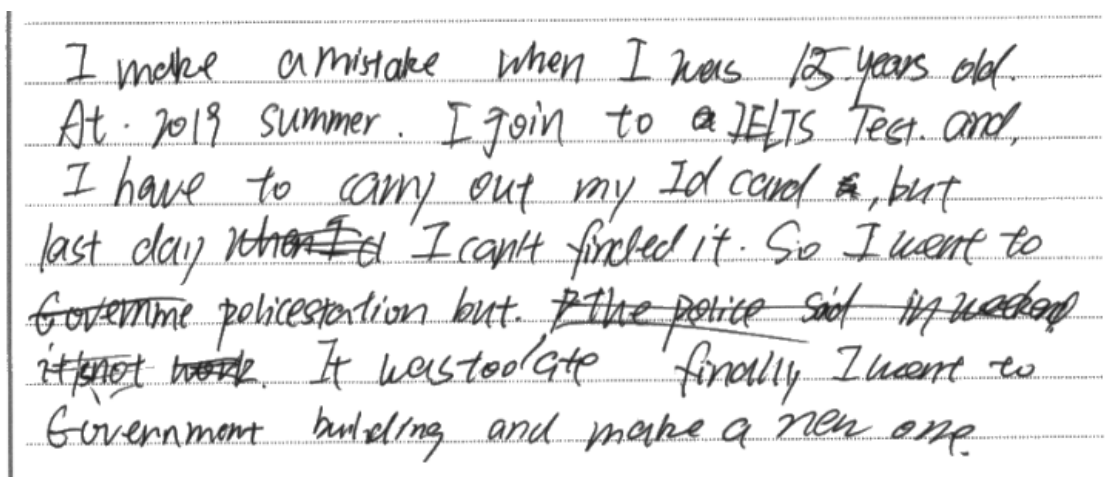 I make a mistake when I was 15 years old.
At. 2019 summer. I join to a IELTS Test. and,
I have to carry out my Id card, but
last day I can't finded it. So I went to
policestation but.
It was too late finally I went to
Government building and make a new one.